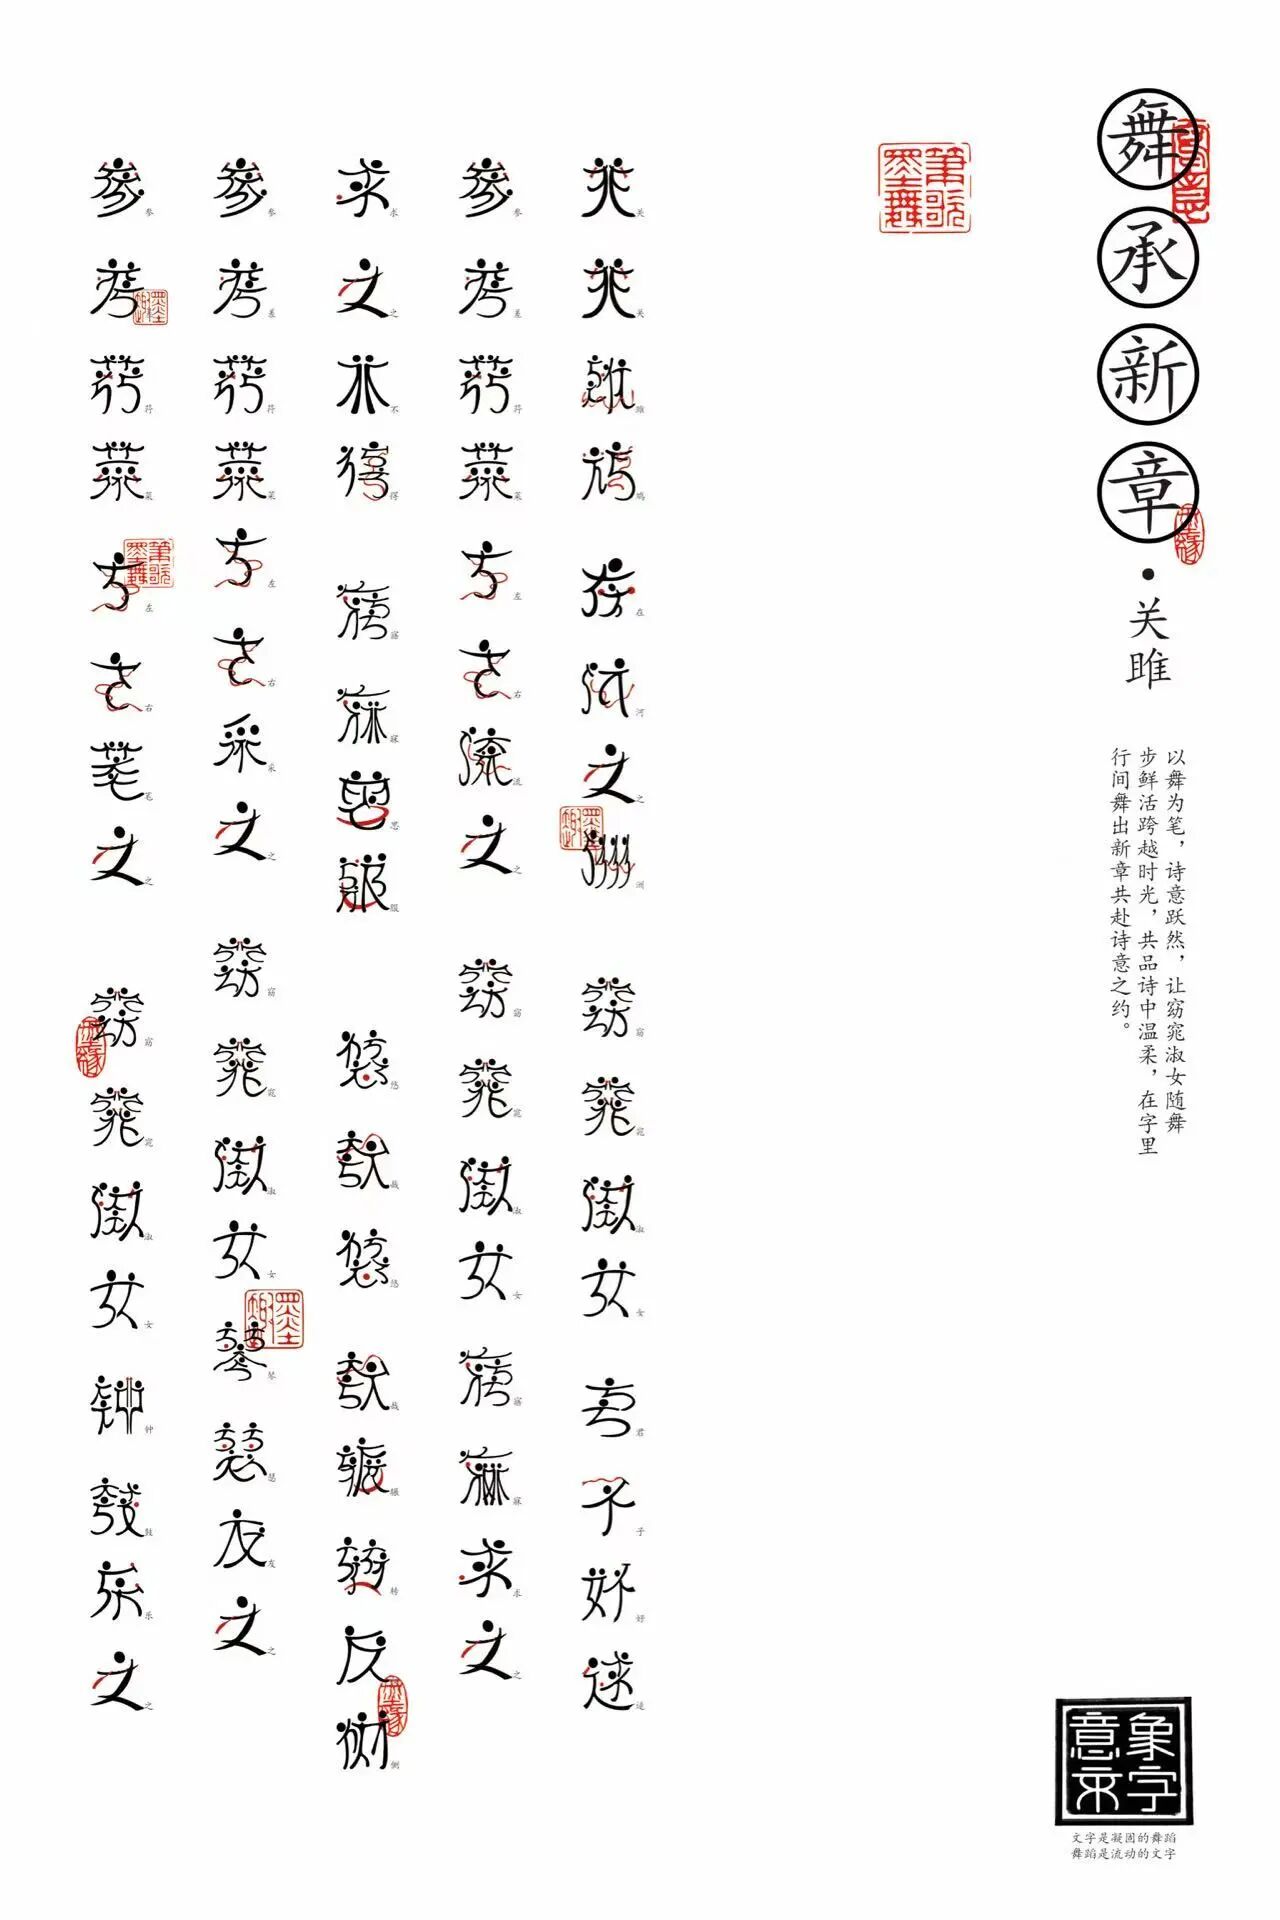 舞承新章·关雎
以舞为笔，诗意跃然，让窈窕淑女随舞
步鲜活跨越时光，共品诗中温柔，在字里
行间舞出新章共赴诗意之约。
笔歌墨舞
关关雎鸠 在河之洲 窈窕淑女 君子好逑
参差荇菜 左右流之 窈窕淑女 寤寐求之
求之不得 寤寐思服 悠哉悠哉 辗转反侧
参差荇菜 左右采之 窈窕淑女 琴瑟友之
参差荇菜 左右芼之 窈窕淑女 钟鼓乐之
笔歌墨舞
象字
意
文字是凝固的舞蹈
舞蹈是流动的文字